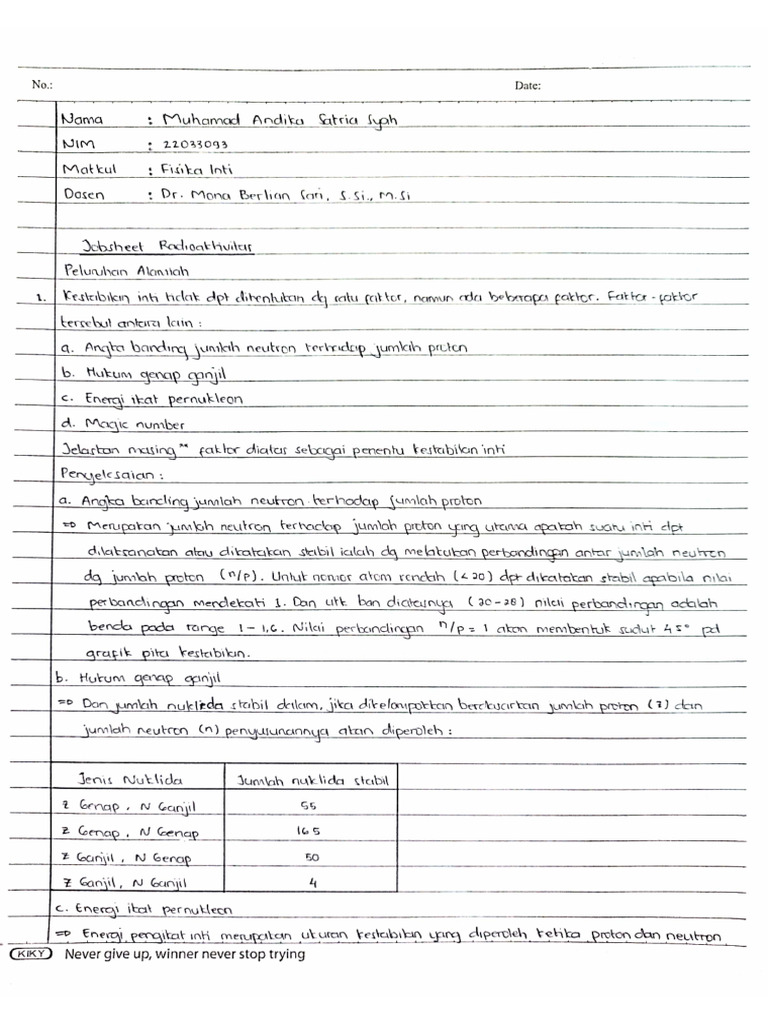 No.: Date:
Nama : Muhamad Andika Satria Syah
NIM : 22033093
Matkul : Fisika Inti
Dosen : Dr. Mona Berlian Sari, S.Si., M.Si
Jobsheet Radioaktivitas
Peluruhan Alamiah
1. Kestabilan inti tidak dpt ditentukan dg satu faktor, namun ada beberapa faktor. Faktor-faktor
tersebut antara lain :
a. Angka banding jumlah neutron terhadap jumlah proton
b. Hukum genap ganjil
c. Energi ikat pernukleon
d. Magic number
Jelaskan masing" faktor diatas sebagai penentu kestabilan inti
Penyelesaian :
a. Angka banding jumlah neutron terhadap jumlah proton
=> Merupakan jumlah neutron terhadap jumlah proton yang utama apakah suatu inti dpt
dilaksanakan atau dikatakan stabil ialah dg melakukan perbandingan antar jumlah neutron
dg jumlah proton (n/p). Untuk nomor atom rendah (<20) dpt dikatakan stabil apabila nilai
perbandingan mendekati 1. Dan utk ban diatasnya (20-28) nilai perbandingan adalah
benda pada range 1-1,6. Nilai perbandingan n/p = 1 akan membentuk sudut 45° pd
grafik pita kestabilan.
b. Hukum genap ganjil
=> Dan jumlah nuklida stabil dalam, jika dikelompokkan berdasarkan jumlah proton (z) dan
jumlah neutron (n) penyusunannya akan diperoleh :
Jenis Nuklida Jumlah nuklida stabil
Z Genap, N Ganjil 55
Z Genap, N Genap 165
Z Ganjil, N Genap 50
Z Ganjil, N Ganjil 4
c. Energi ikat pernukleon
=> Energi pengikat inti merupakan ukuran kestabilan yang diperoleh ketika proton dan neutron
KIKY Never give up, winner never stop trying